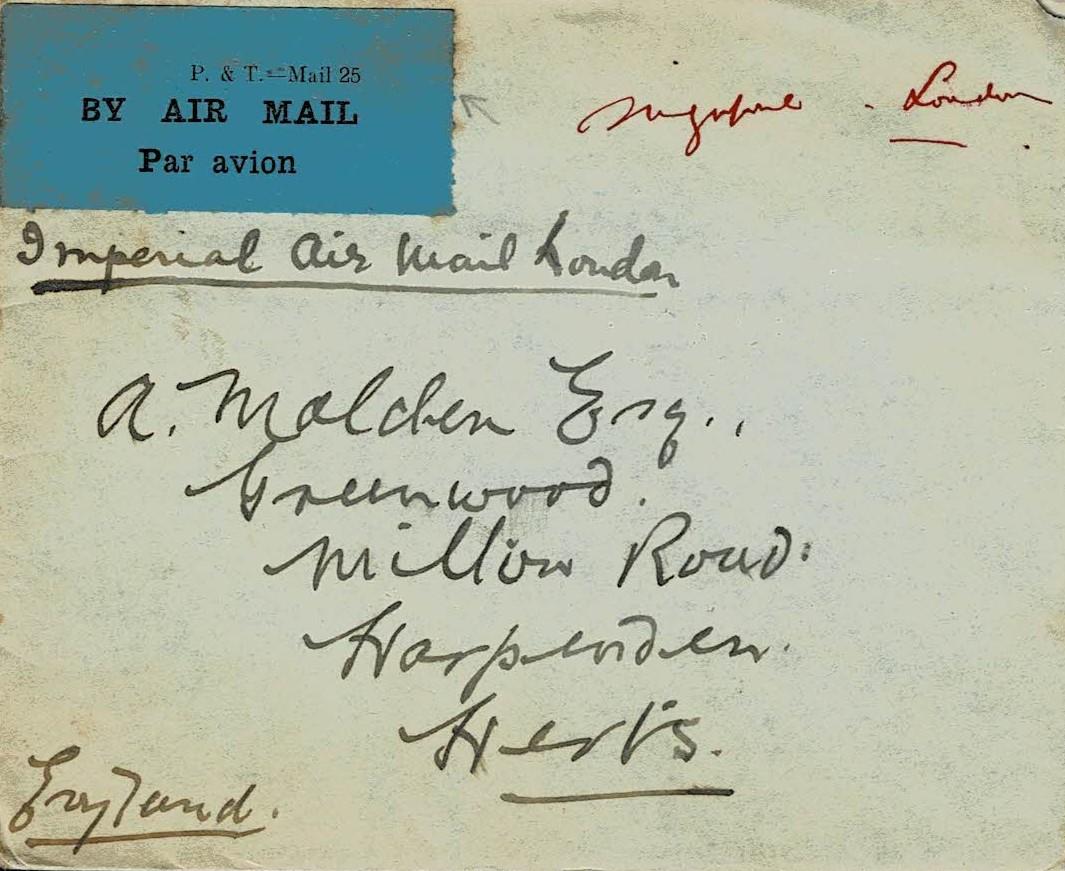 P. & T.—Mail 25
BY AIR MAIL
Par avion
Singapore - London
Imperial Air Mail London
A. Malden Esq.,
Greenwood.
Milton Road.
Harpenden.
Herts.
England.